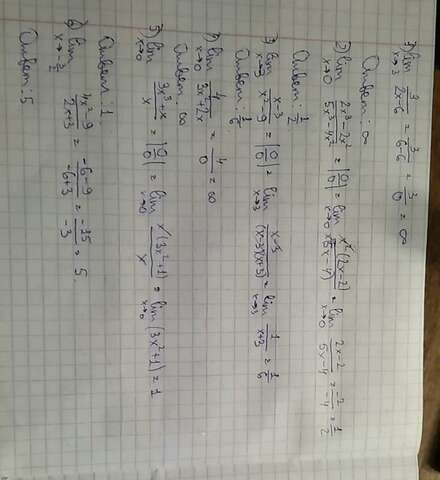 1) lim x→3 3/(2x-6) = 3/(6-6) = 3/0 = ∞
Ответ: ∞
2) lim x→0 (2x³-2x²)/(5x³-4x²) = |0/0| = lim x→0 x²(2x-2)/x²(5x-4) = lim x→0 (2x-2)/(5x-4) = -2/-4 = 1/2
Ответ: 1/2
3) lim x→3 (x-3)/(x²-9) = |0/0| = lim x→3 (x-3)/(x-3)(x+3) = lim x→3 1/(x+3) = 1/6
Ответ: 1/6
lim x→0 4/(3x²+2x) = 4/0 = ∞
Ответ: ∞
lim x→0 (3x³+x)/x = |0/0| = lim x→0 x(3x²+1)/x = lim x→0 (3x²+1) = 1
Ответ: 1
6) lim x→-3/2 (4x²-9)/(2x+3) = (-6-9)/(-6+3) = -15/-3 = 5
Ответ: 5